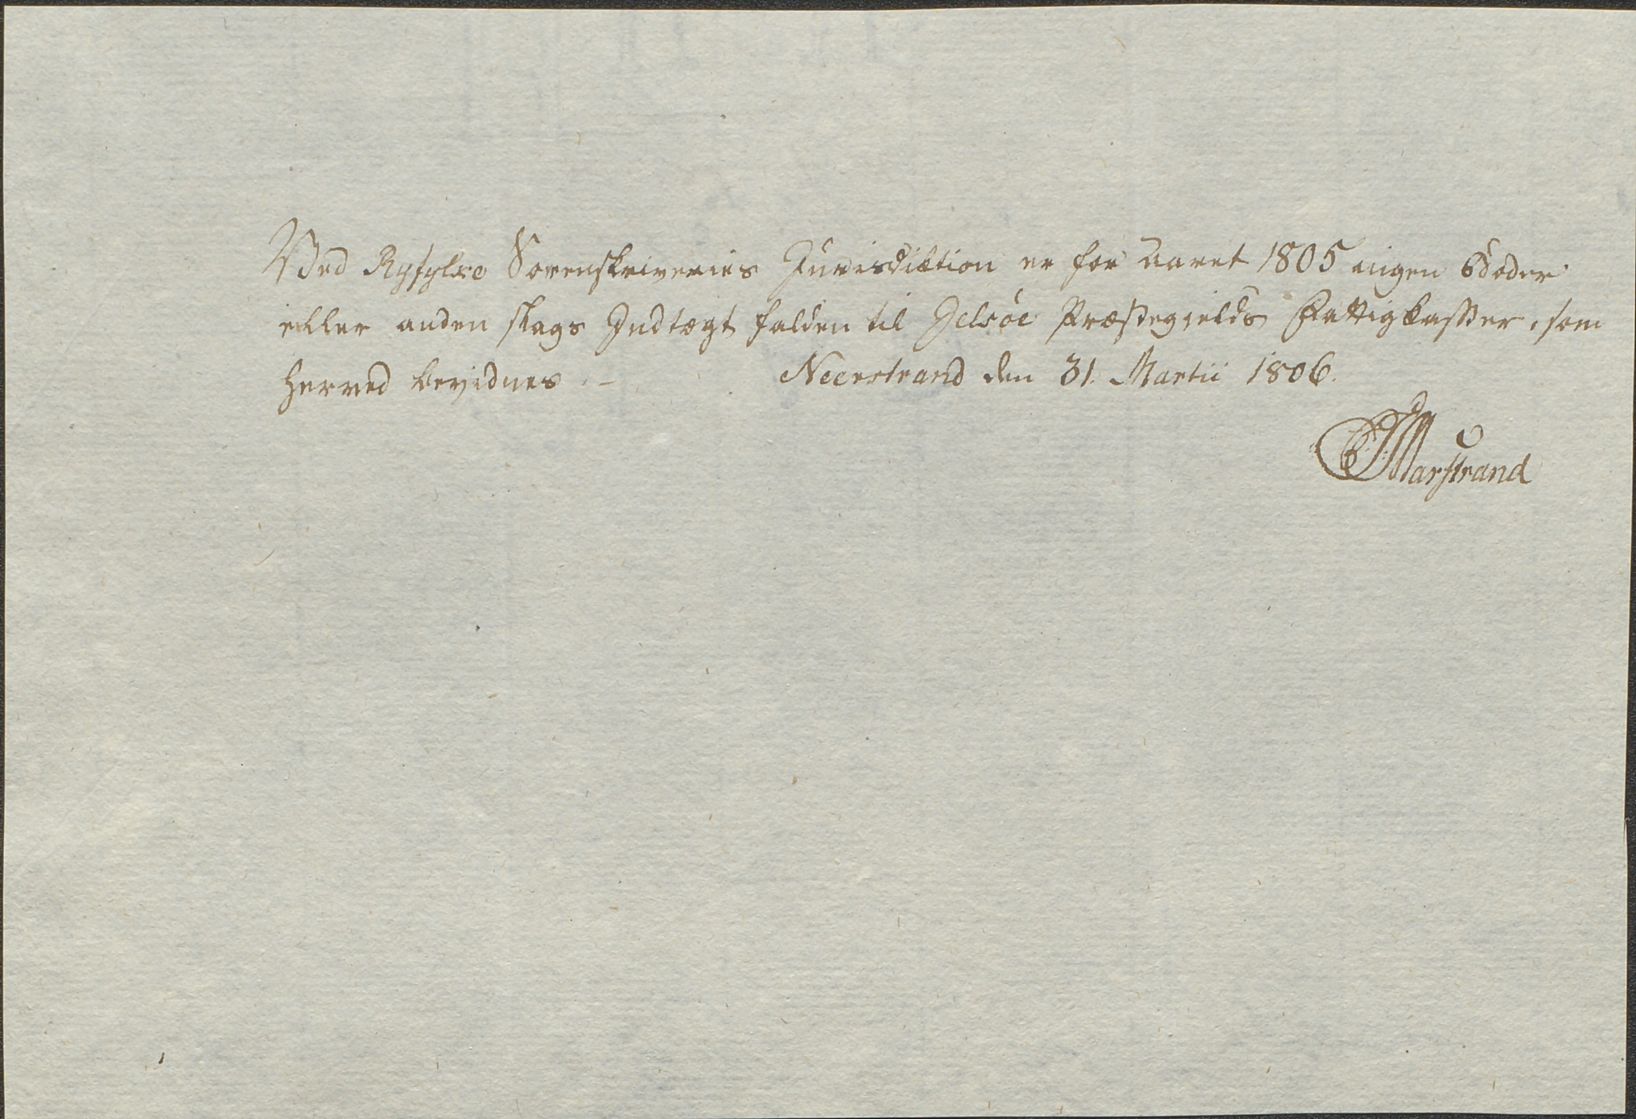 Ved Ryfylke Sorenskriveries Jurisdiction er for Aaret 1805 ingen Bøder
eller anden slags Indtægt falden til Jelsøe Præstegields Fattigkasser, som
herved bevidnes. – Neerstrand den 31. Martii 1806.
Marstrand